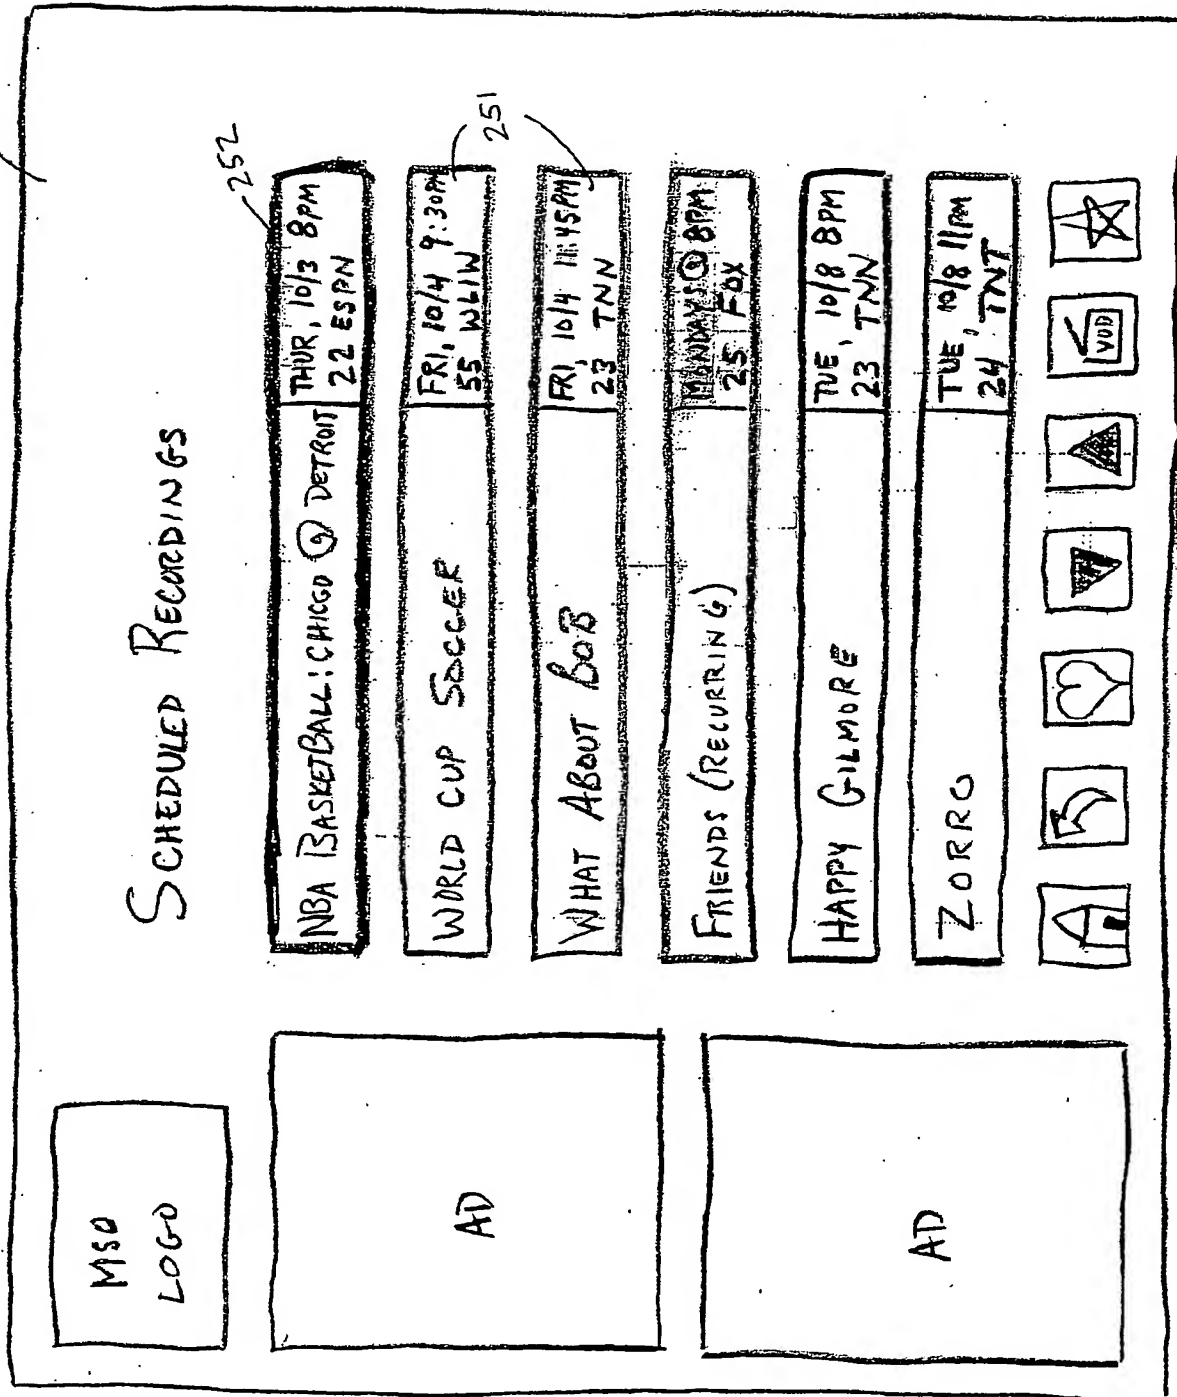 MSO
LOGO
SCHEDULED RECORDINGS
252
NBA BASKETBALL: CHICGO @ DETROIT
THUR, 10/3 8PM
22 ESPN
251
WORLD CUP SOCCER
FRI, 10/4 9:30PM
55 WLIW
WHAT ABOUT BOB
FRI, 10/4 11:45PM
23 TNN
FRIENDS (RECURRING)
MONDAYS @ 8PM
25 FOX
HAPPY GILMORE
TUE, 10/8 8PM
23 TNN
ZORRO
TUE, 10/8 11PM
24 TNT
AD
AD
VOD